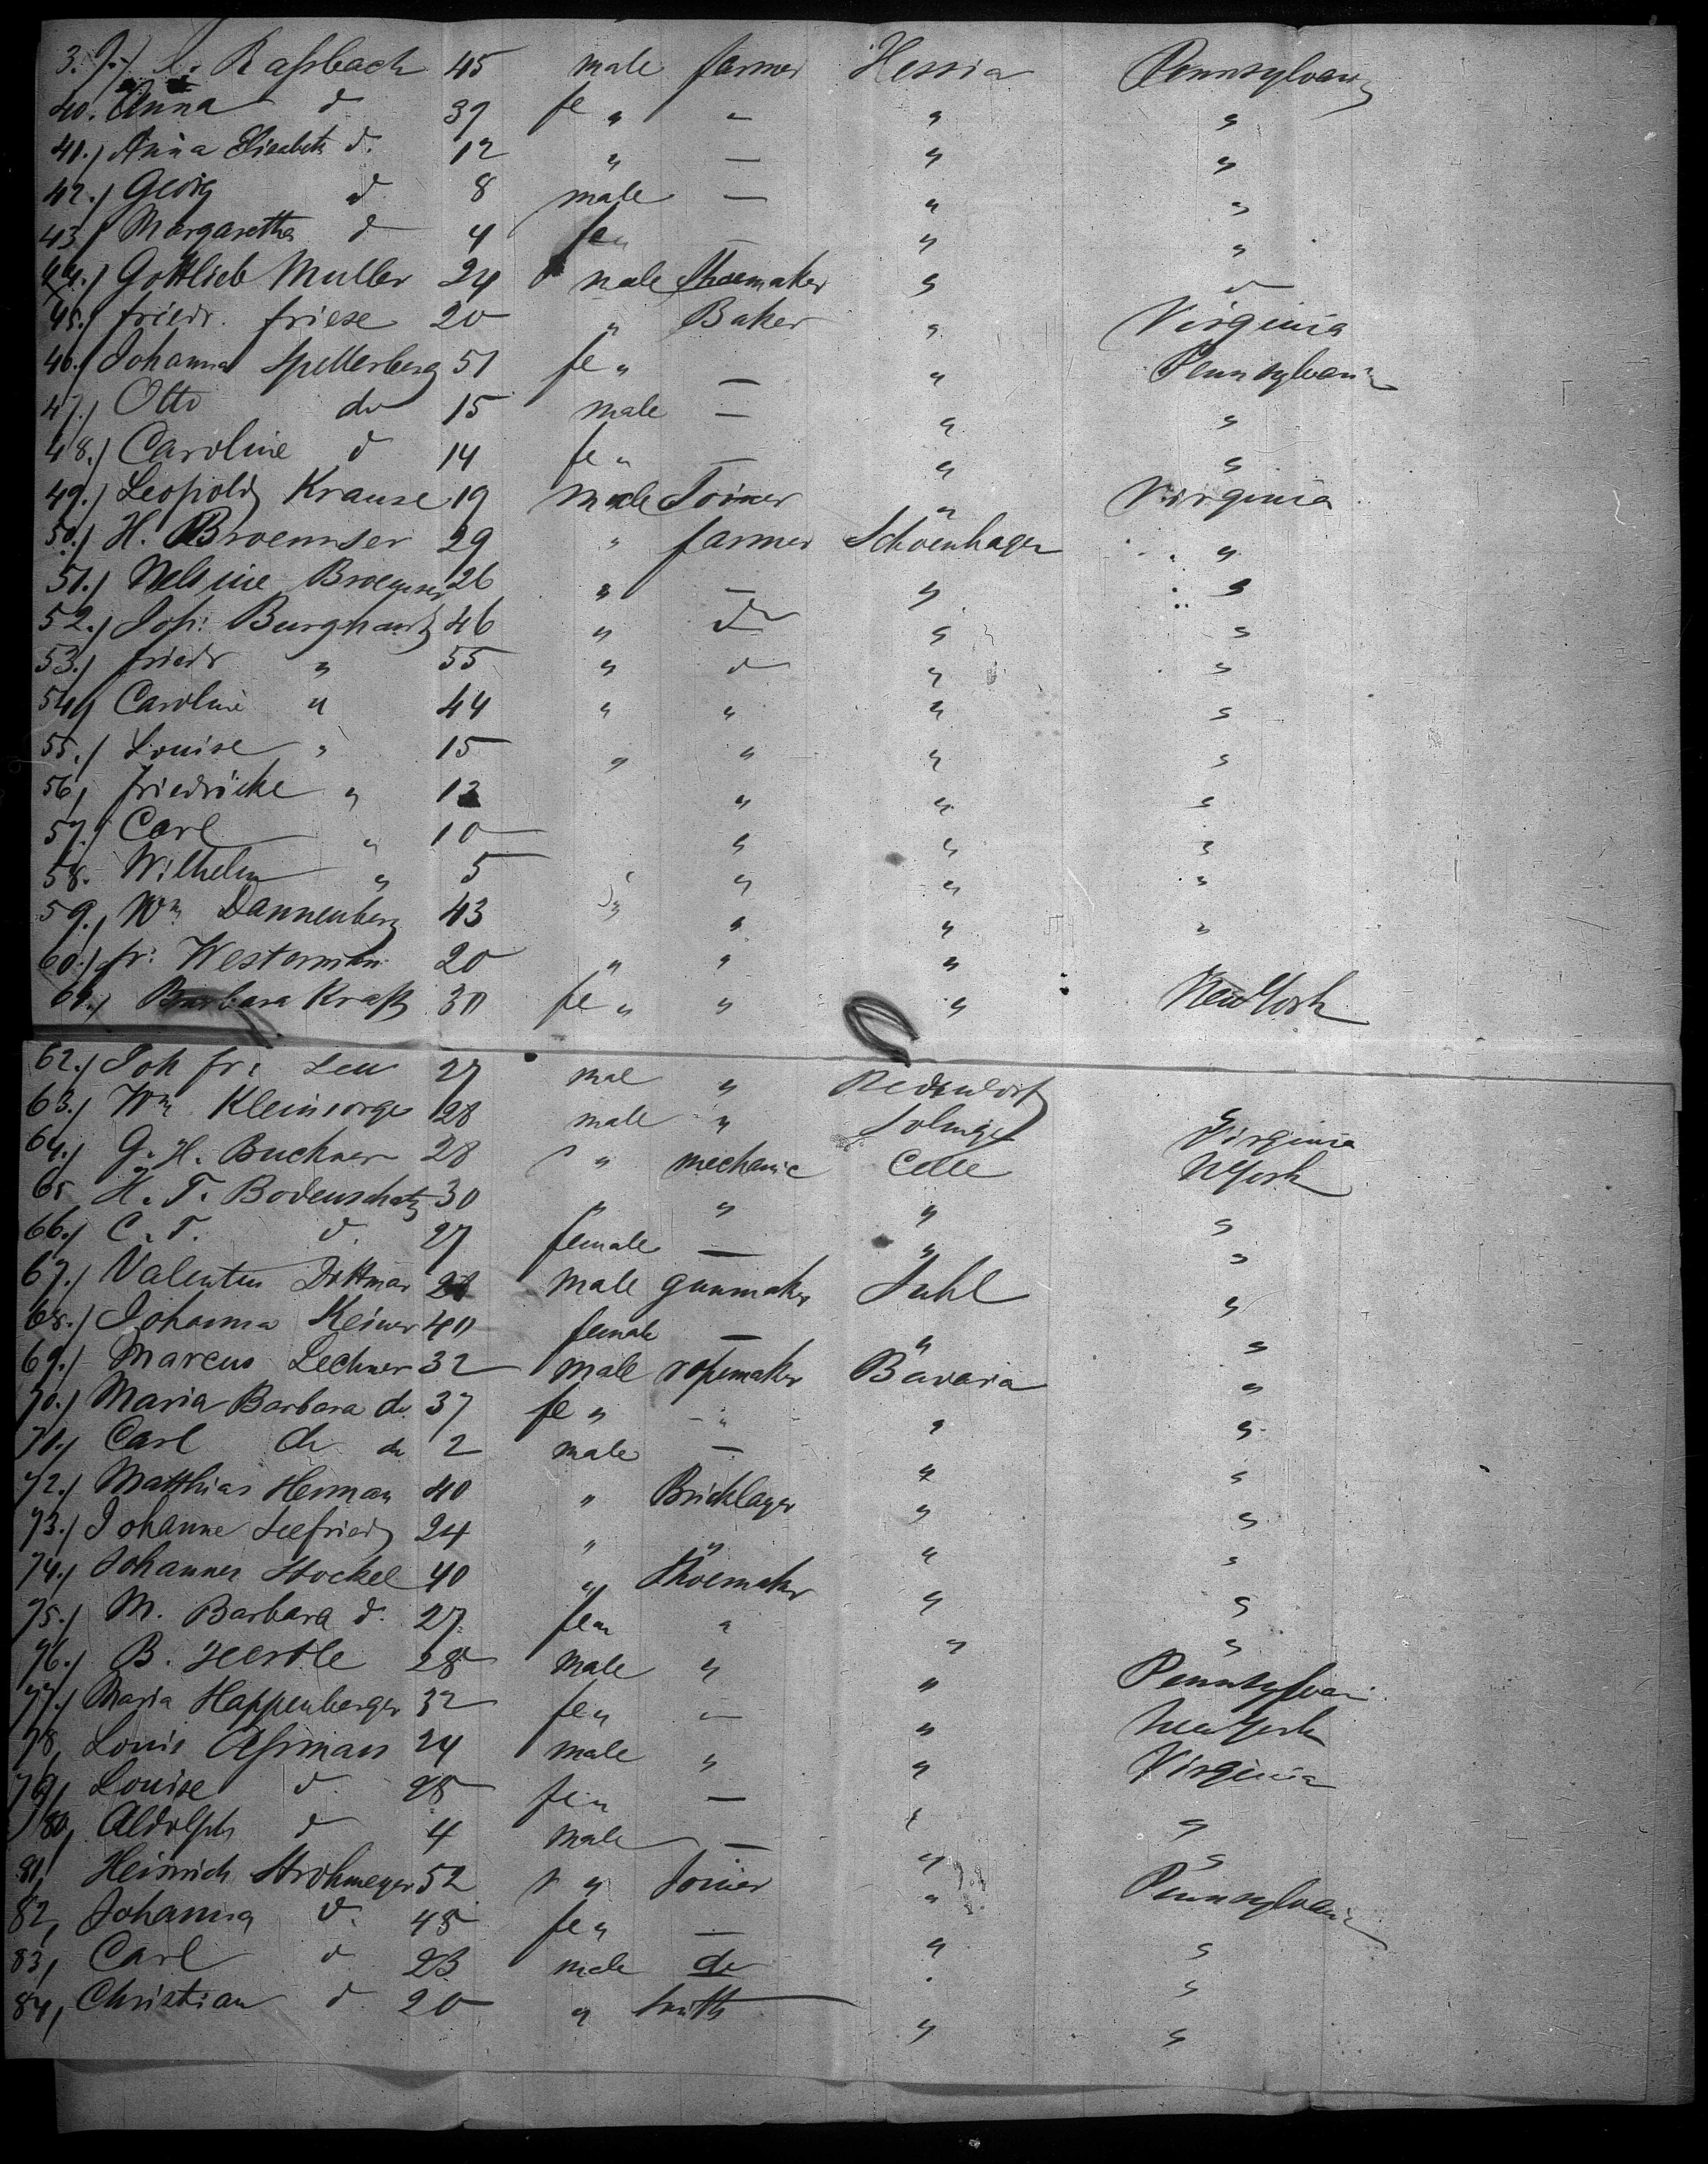 39.) Raßbach 45 male farmer Hessia Pennsylvan
40. Anna d 37 fe " - " "
41.) Anna Elisabeth d. 12 " — " "
42.) Georg d 8 male — " "
43.) Margaretha d 4 fe " — " "
44.) Gottlieb Muller 24 male Shoemaker " d
45.) friedr. friese 20 " Baker " Virginia
46.) Johanna Spellerberg 51 fe " — " Pennsylvani
47.) Otto do 15 male — " "
48.) Caroline d 14 fe " — " "
49.) Leopold Krause 19 male Joiner " Virginia
50.) H. Broemser 29 " farmer Schoenhagen "
51.) Broemser 26 " — " "
52.) Joh: Burghardt 46 " d " "
53.) friedr " 55 " d " "
54.) Caroline " 44 " " " "
55.) Louise " 15 " " " "
56, friedricke " 12 " " "
57.) Carl " 10 " " "
58. Wilhelm " 5 " " "
59., Wm Dannenberg 43 " " " "
60.) fr: Westerman 20 " " "
61.) Barbara Kraft 30 fe " " " New York
62.) Joh fr: Leu 27 mal "
63.) Wm Kleinsorge 28 male " Virginia
64.) G. H. Buchner 28 " mechanic Celle NYork
65 H. T. Bodenschatz 30 " " " "
66.) C. T. d. 27 female — " "
67.) Valentin Dittmar 28 male gunmaker Suhl "
68.) Johanna Keiner 40 female — " "
69.) Marcus Lechner 32 male ropemaker Bavaria "
70.) Maria Barbara do 37 fe " - " " "
71.) Carl do do 2 male — " "
72.) Matthias Herman 40 " Bricklayer " "
73.) Johanne Seefried 24 " " " "
74.) Johannes Stockel 40 " Shoemaker " "
75.) M. Barbara d. 27 fe " " " "
76.) B. 28 male " " Pennsylvani
77.) Maria Happenberger 32 fe " — " New York
78, Louis Aßman 24 male " " Virginia
79, Louise d 28 fe " — " "
80, Aldolph d 4 male — " "
81, Heinrich Strohmeyer 52 " Joiner " Pennsylvani
82, Johanna d. 48 fe " — " "
83, Carl d 23 male do " "
84, Christian d 20 " smith " "